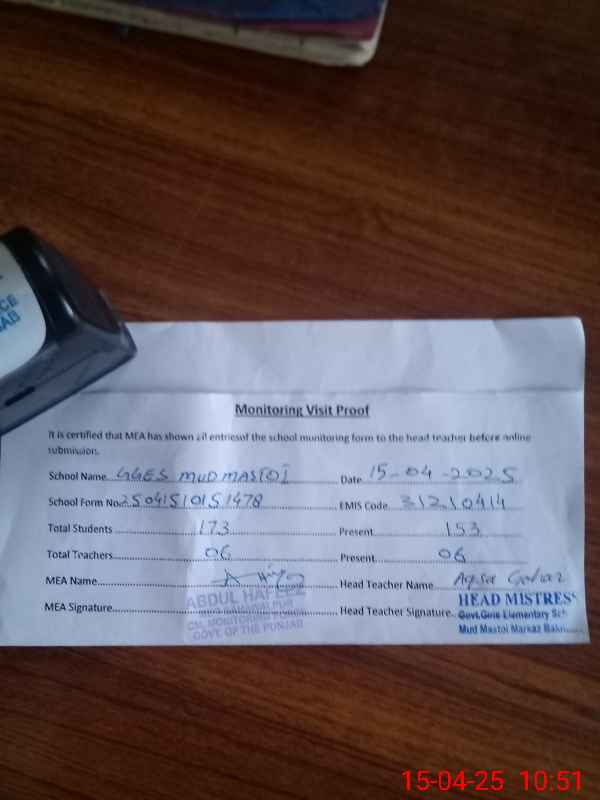 CE
AB
Monitoring Visit Proof
It is certified that MEA has shown all entries of the school monitoring form to the head teacher before online
submission.
School Name GGES MUD MASTOI Date 15-04-2025
School Form No. 2504151015 1478 EMIS Code 31210414
Total Students 173 Present 153
Total Teachers 06 Present 06
MEA Name Head Teacher Name Aqsa
ABDUL HAFEEZ
MEA Signature Head Teacher Signature
HEAD MISTRESS
Govt. Girls Elementary Sch
CM, MONITORING FORCE
GOVT. OF THE PUNJAB
Mud Mastoi Markaz
15-04-25 10:51